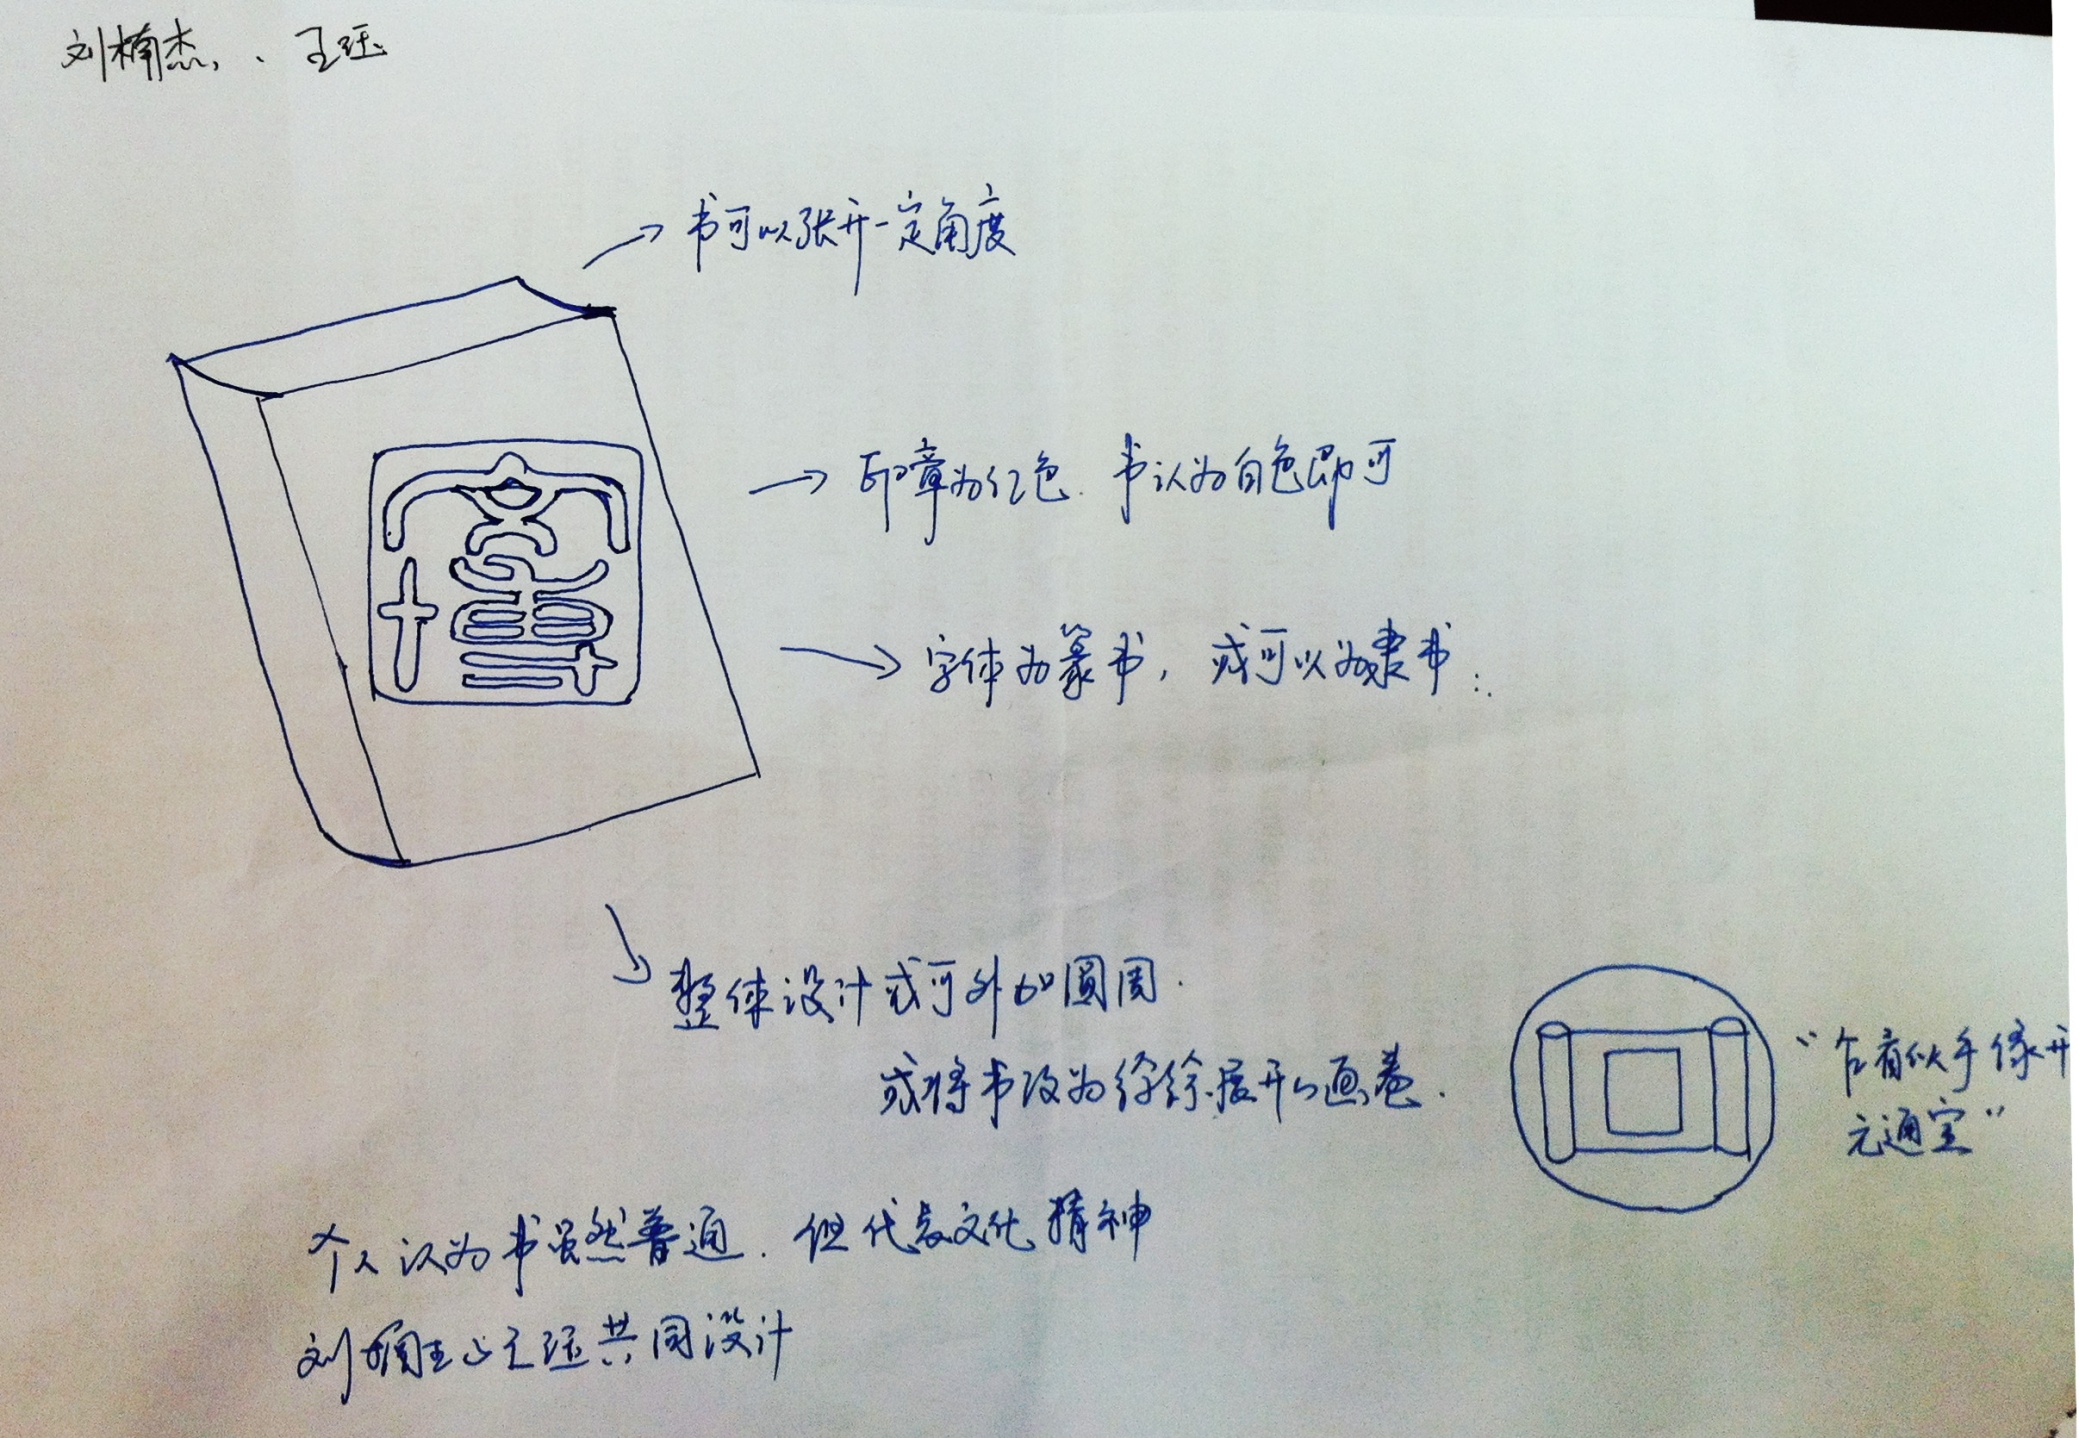 刘楠杰、王珏
书可以张开一定角度
印章为红色.书认为白色即可
字体为篆书,或可以为隶书
整体设计或可外加圆周.
或将书改为徐徐展开的画卷.
"乍看似乎像开
元通宝"
个人认为书虽然普通.但代表文化精神
刘楠杰与王珏共同设计